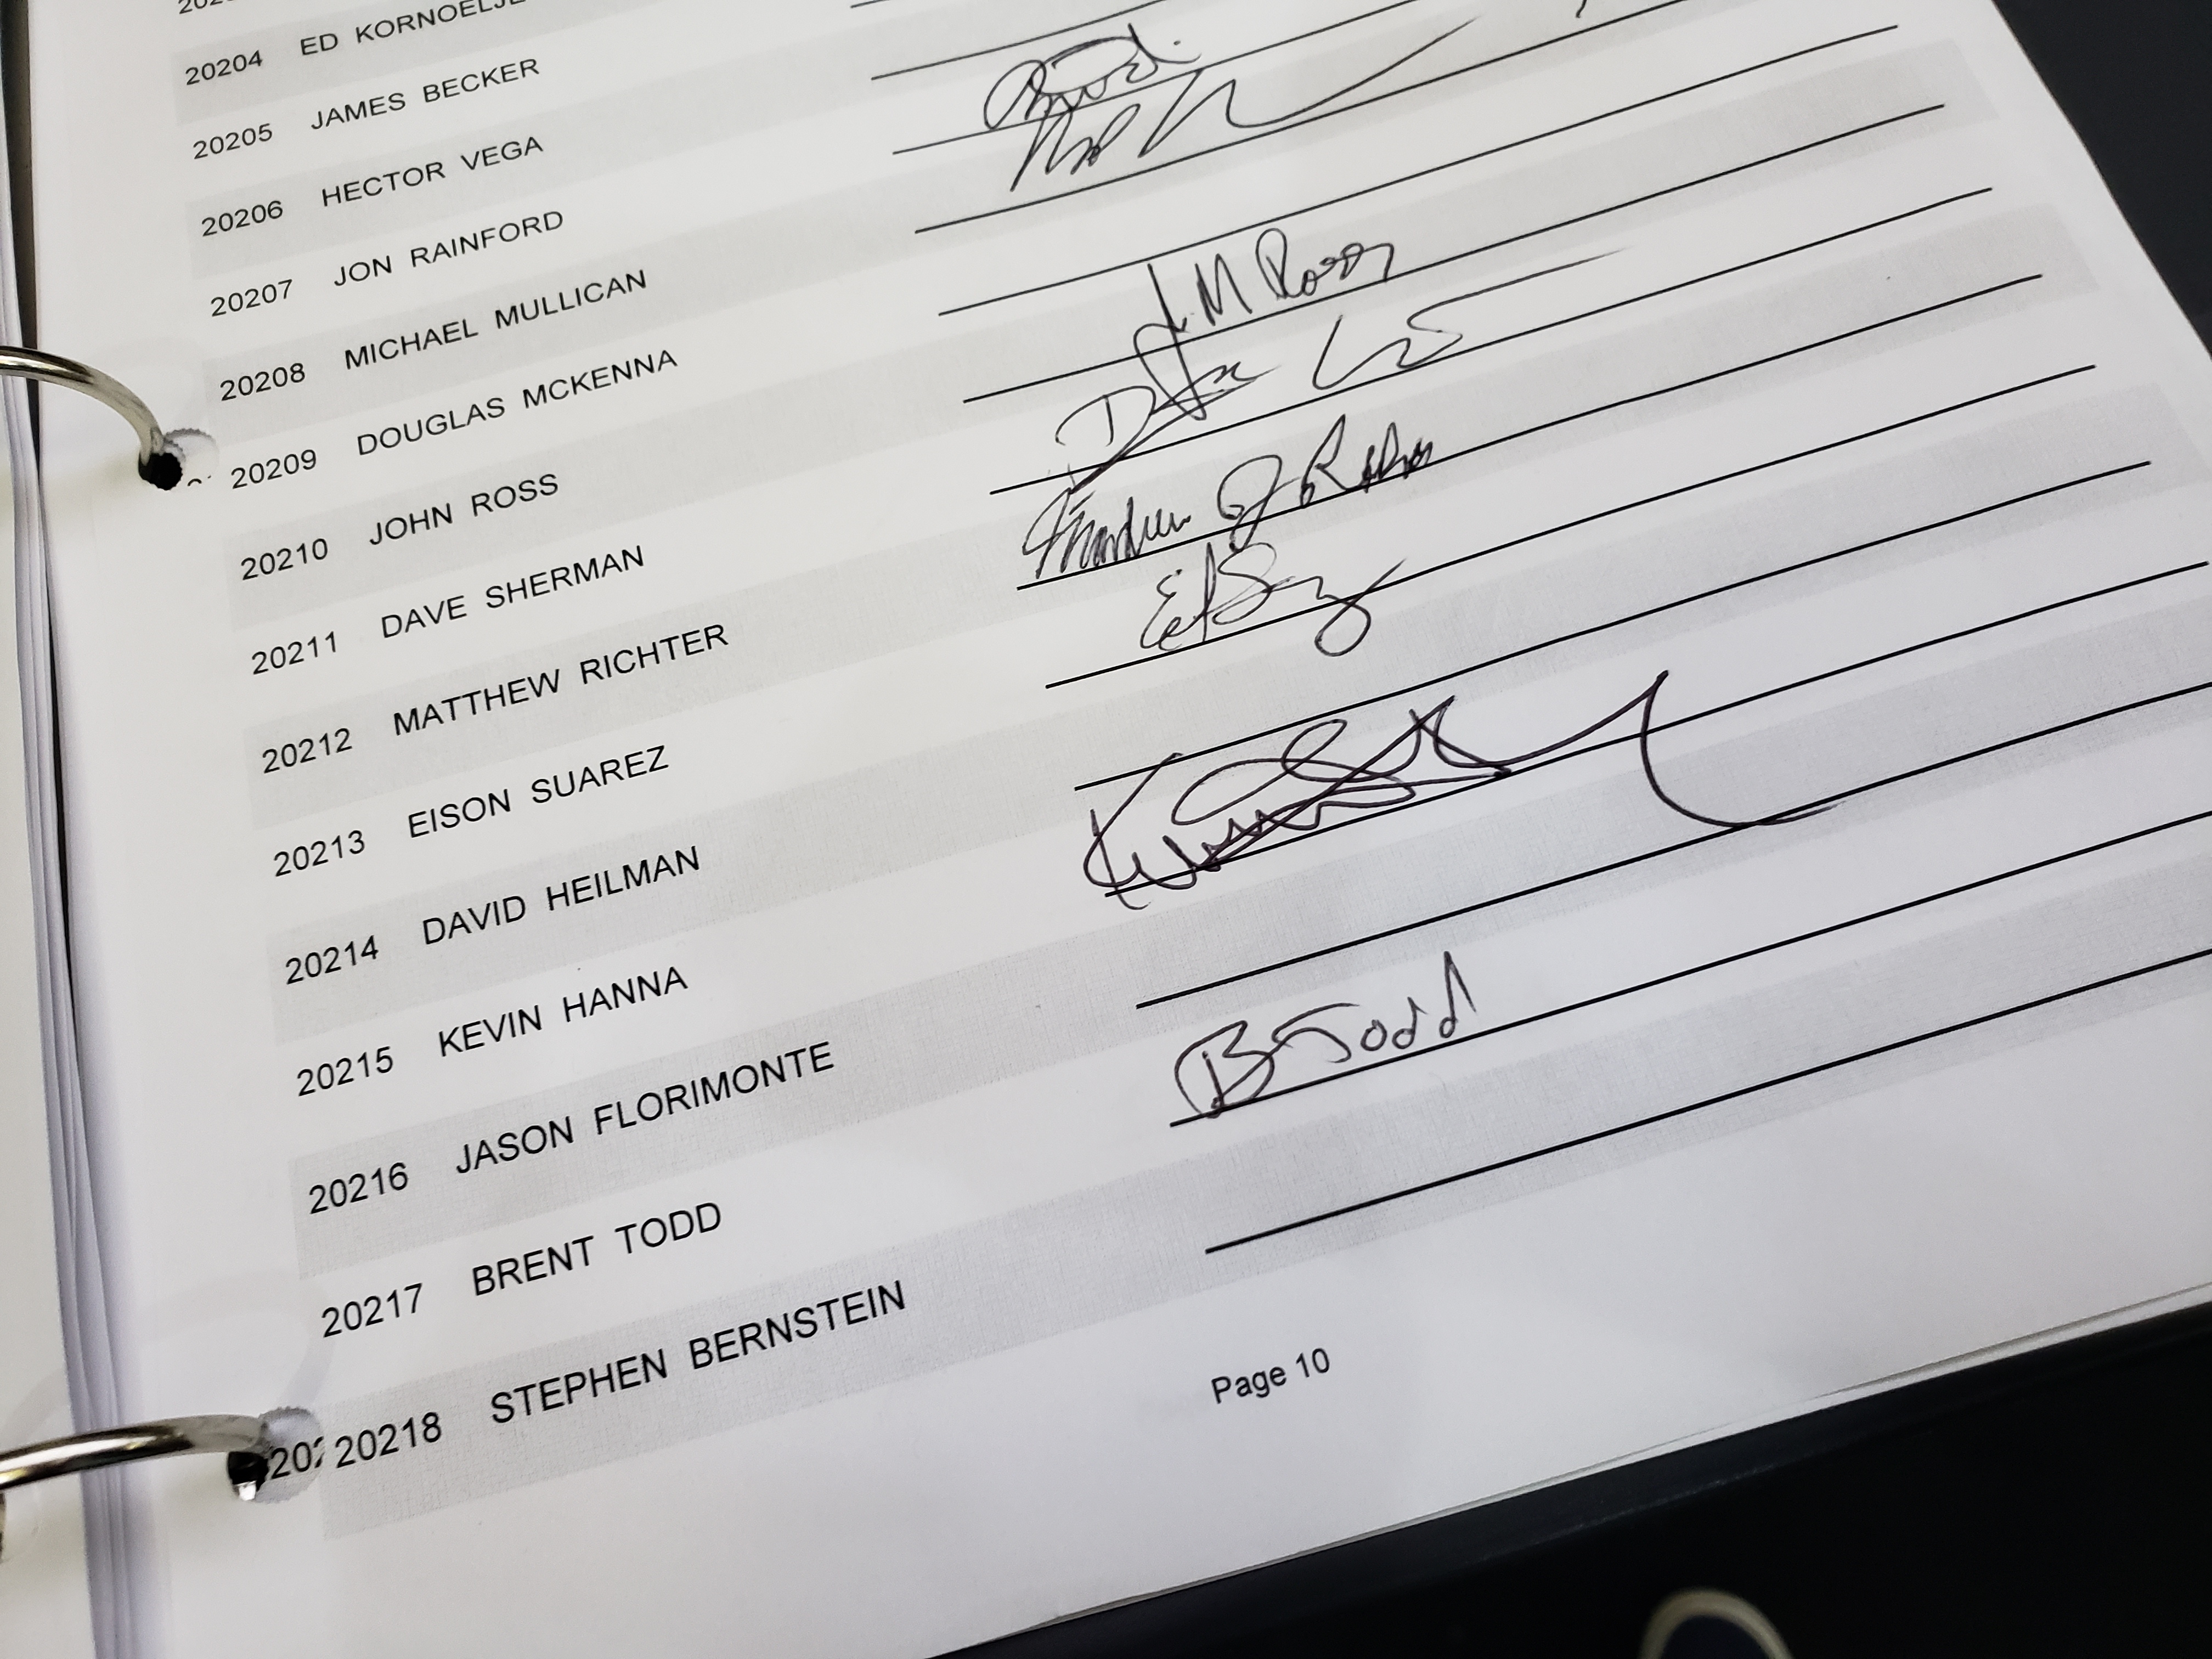 20204 ED KORNOELJE
20205 JAMES BECKER
20206 HECTOR VEGA
20207 JON RAINFORD
20208 MICHAEL MULLICAN
20209 DOUGLAS MCKENNA
20210 JOHN ROSS J M Ross
20211 DAVE SHERMAN
20212 MATTHEW RICHTER
20213 EISON SUAREZ
20214 DAVID HEILMAN
20215 KEVIN HANNA
20216 JASON FLORIMONTE
20217 BRENT TODD B Todd
20218 STEPHEN BERNSTEIN
Page 10